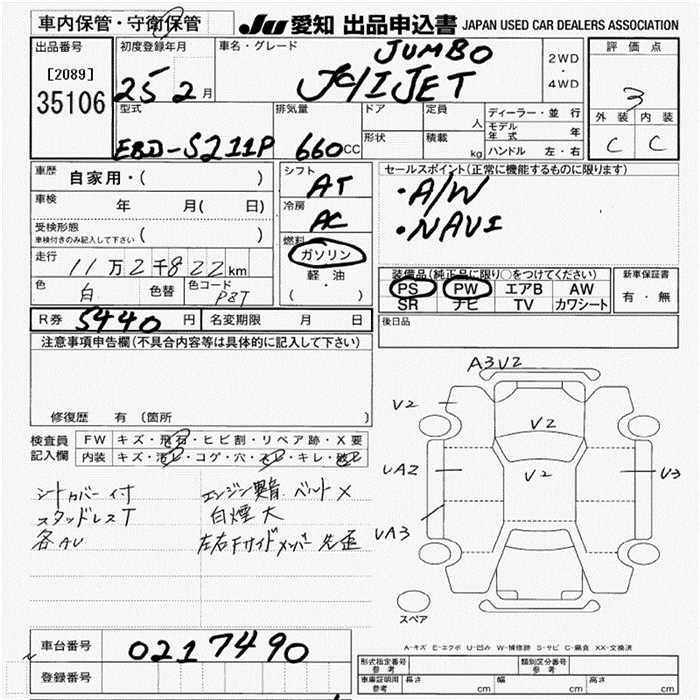 車内保管・守衛保管
JU 愛知 出品申込書 JAPAN USED CAR DEALERS ASSOCIATION
出品番号
[2089]
35106
初度登録年月
25 2月
車名・グレード
JUMBO
2WD
・
4WD
評価点
3
外装 内装
C C
型式
EBD-S211P
排気量
660CC
ドア
形状
定員
人
積載
kg
ディーラー・並行
モデル年式 年
ハンドル 左・右
車歴 自家用・( )
車検 年 月( 日)
受検形態
車検付きのみ記入して下さい ( )
走行
11万2千822km
色 白 色替 色コード P8T
シフト
AT
冷房
AC
燃料
ガソリン
軽・油
( )
セールスポイント(正常に機能するものに限ります)
・A/W
・NAVI
装備品(純正品に限り○をつけてください)
PS PW エアB AW
SR ナビ TV カワシート
新車保証書
有・無
後日品
R券 5440円 名変期限 月 日
注意事項申告欄(不具合内容等は具体的に記入して下さい)
修復歴 有 (箇所 )
検査員
記入欄
FW キズ・飛石・ヒビ割・リペア跡・X要
内装 キズ・汚レ・コゲ・穴・スレ・キレ・破レ
シートカバー付
スタッドレスT
各AU
エンジン異音 ベルトX
白煙大
左右Fサイドメンバー先歪
A3V2
V2
V2
V2
UA2
U3
UA3
スペア
A-キズ E-エクボ U-凹み W-補修跡 S-サビ C-腐食 XX-交換済
車台番号 0217490
登録番号
形式指定番号
参考
類別区分番号
参考
車庫証明用
参考
長さ cm 幅 cm 高さ cm